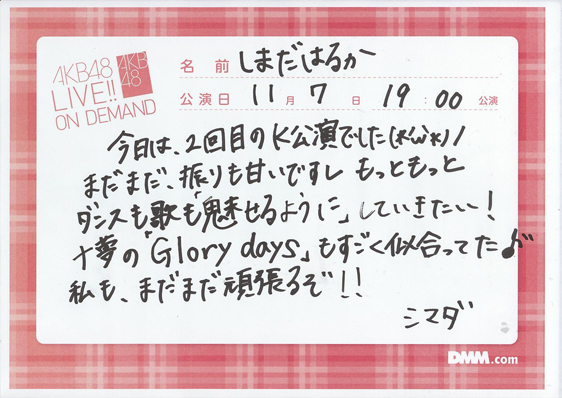 AKB48
LIVE!!
ON DEMAND
AKB
48
名 前 しまだはるか
公演日 11月 7日 19:00 公演
今日は、2回目のK公演でした(*'ω'*)ノ
まだまだ、振りも甘いですし もっともっと
ダンスも歌も「魅せるように」していきたい!
十夢の「Glory days」もすごく似合ってた♪
私も、まだまだ頑張るぞ!!
シマダ
DMM.com